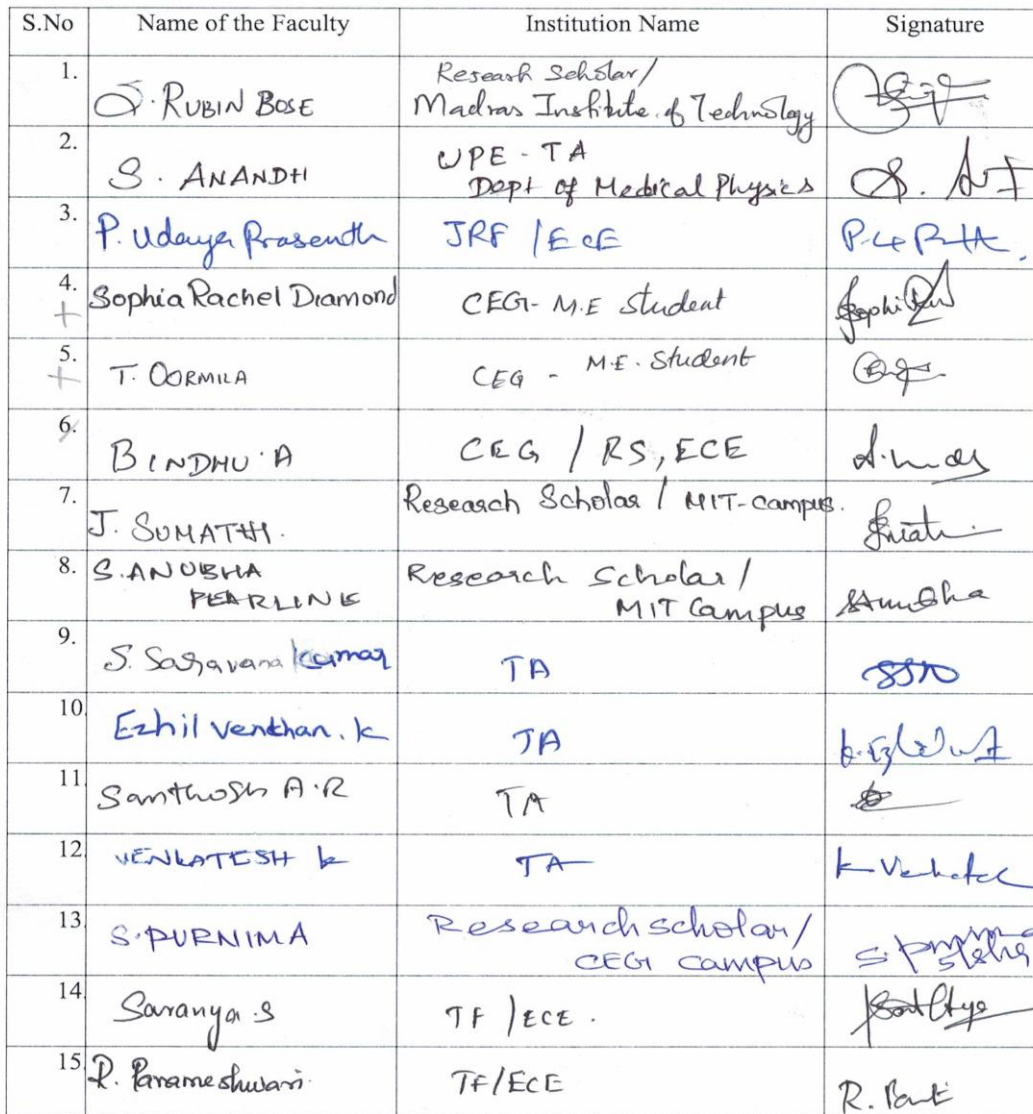 S.No Name of the Faculty Institution Name Signature
1. S. RUBIN BOSE Researh Scholar/
Madras Institute of Technology
2. S. ANANDH UPE - TA
Dept of Medical Physics
3. P. Udaya Prasenth JRF / ECE
4. Sophia Rachel Diamond CEG - M.E Student
5. T. OORMILA CEG - M.E. Student
6. BINDHU A CEG / RS, ECE
7. J. SUMATHI. Research Scholar / MIT-Campus.
8. S. ANUBHA Research Scholar /
PEARLINE MIT Campus
9. S. Saravana kumar TA
10. Ezhil Venthan. K TA
11. Santhosh A.R TA
12. VENKATESH K TA
13. S. PURNIMA Research scholar/
CEG campus
14. Saranya.S TF / ECE.
15. R. Parameshwari. TF/ECE